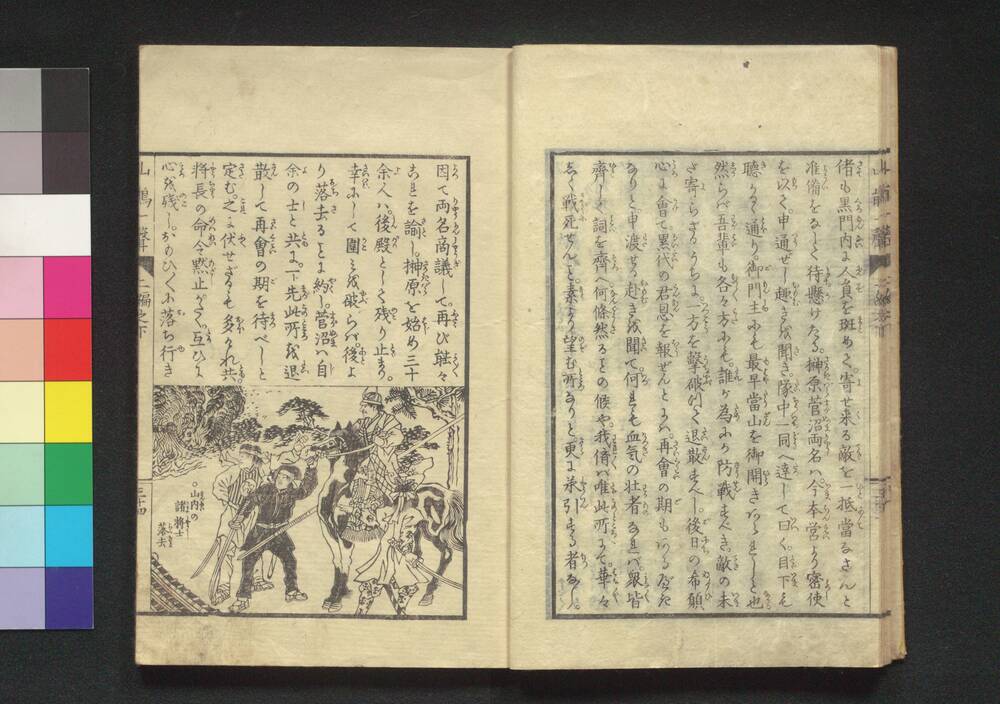 偖も黒門内に人員を斑めて。寄せ来る敵を一抵當なさんと
准備をなして待懸けたる。榊原菅沼両名ハ。今本営より密使
を以て。申通ぜし趣きを聞き。隊中一同へ達して曰く。目下も
聴く通り。御門主にも最早當山を御開き
然らバ吾輩も各々方にも。誰が為にか防戦すべき。敵の未
ざ寄らざるうちに。一方を撃破りて退散すべし。後日の布願
心に會て累代の君恩を報ぜんとには再會の期も
ありと申渡せる赴きを聞て。何れも血気の壮者なれバ。衆皆
齊しく詞を齊へ。何條然るとの候や。我儕ハ唯此所にて。華々
しく戦死せんこと。素より望む所なりと更に承引する者なし。
因て両名商議して。再び
これを諭し。榊原を始め三十
余人ハ。後殿として残り止まる。
幸にして圍みを破らバ。後よ
り落去るに約し。菅沼ハ自
余の士と共に。一ト先此所を退
散して再會の期を待べしと
定む。之に伏せざるも多かれ共。
將長の命令黙止がたく。互ひに
心を残し。おのひ〳〵に落ち行き
山内の
諸將士
落去
二編之下
三十四